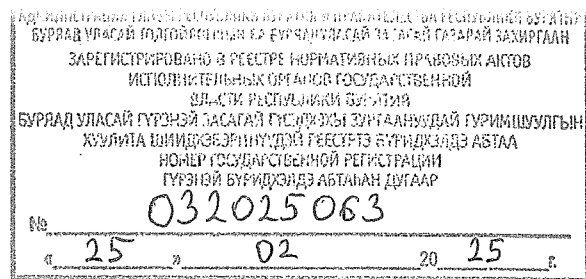 АДМИНИСТРАЦИЯ ГЛАВЫ РЕСПУБЛИКИ БУРЯТИЯ И ПРАВИТЕЛЬСТВА РЕСПУБЛИКИ БУРЯТИЯ
БУРЯАД УЛАСАЙ ЗАСАГАЙ ГАЗАРАЙ ЗАХИРГААН
ЗАРЕГИСТРИРОВАНО В РЕЕСТРЕ НОРМАТИВНЫХ ПРАВОВЫХ АКТОВ
ИСПОЛНИТЕЛЬНЫХ ОРГАНОВ ГОСУДАРСТВЕННОЙ
ВЛАСТИ РЕСПУБЛИКИ БУРЯТИЯ
БУРЯАД УЛАСАЙ ГҮРЭНЭЙ ЗАСАГАЙ ГҮЙСЭДХЭХЫ ЗУРГААНУУДАЙ ГУРИМШУУЛГЫН
ХУУЛИТА ШИИДХЭБЭРИНҮҮДЭЙ РЕЕСТРТЭ БҮРИДХЭЛДЭ АБТАА
НОМЕР ГОСУДАРСТВЕННОЙ РЕГИСТРАЦИИ
ГҮРЭНЭЙ БҮРИДХЭЛДЭ АБТАҺАН ДУГААР
№ 032025063
« 25 » 02 20 25 г.